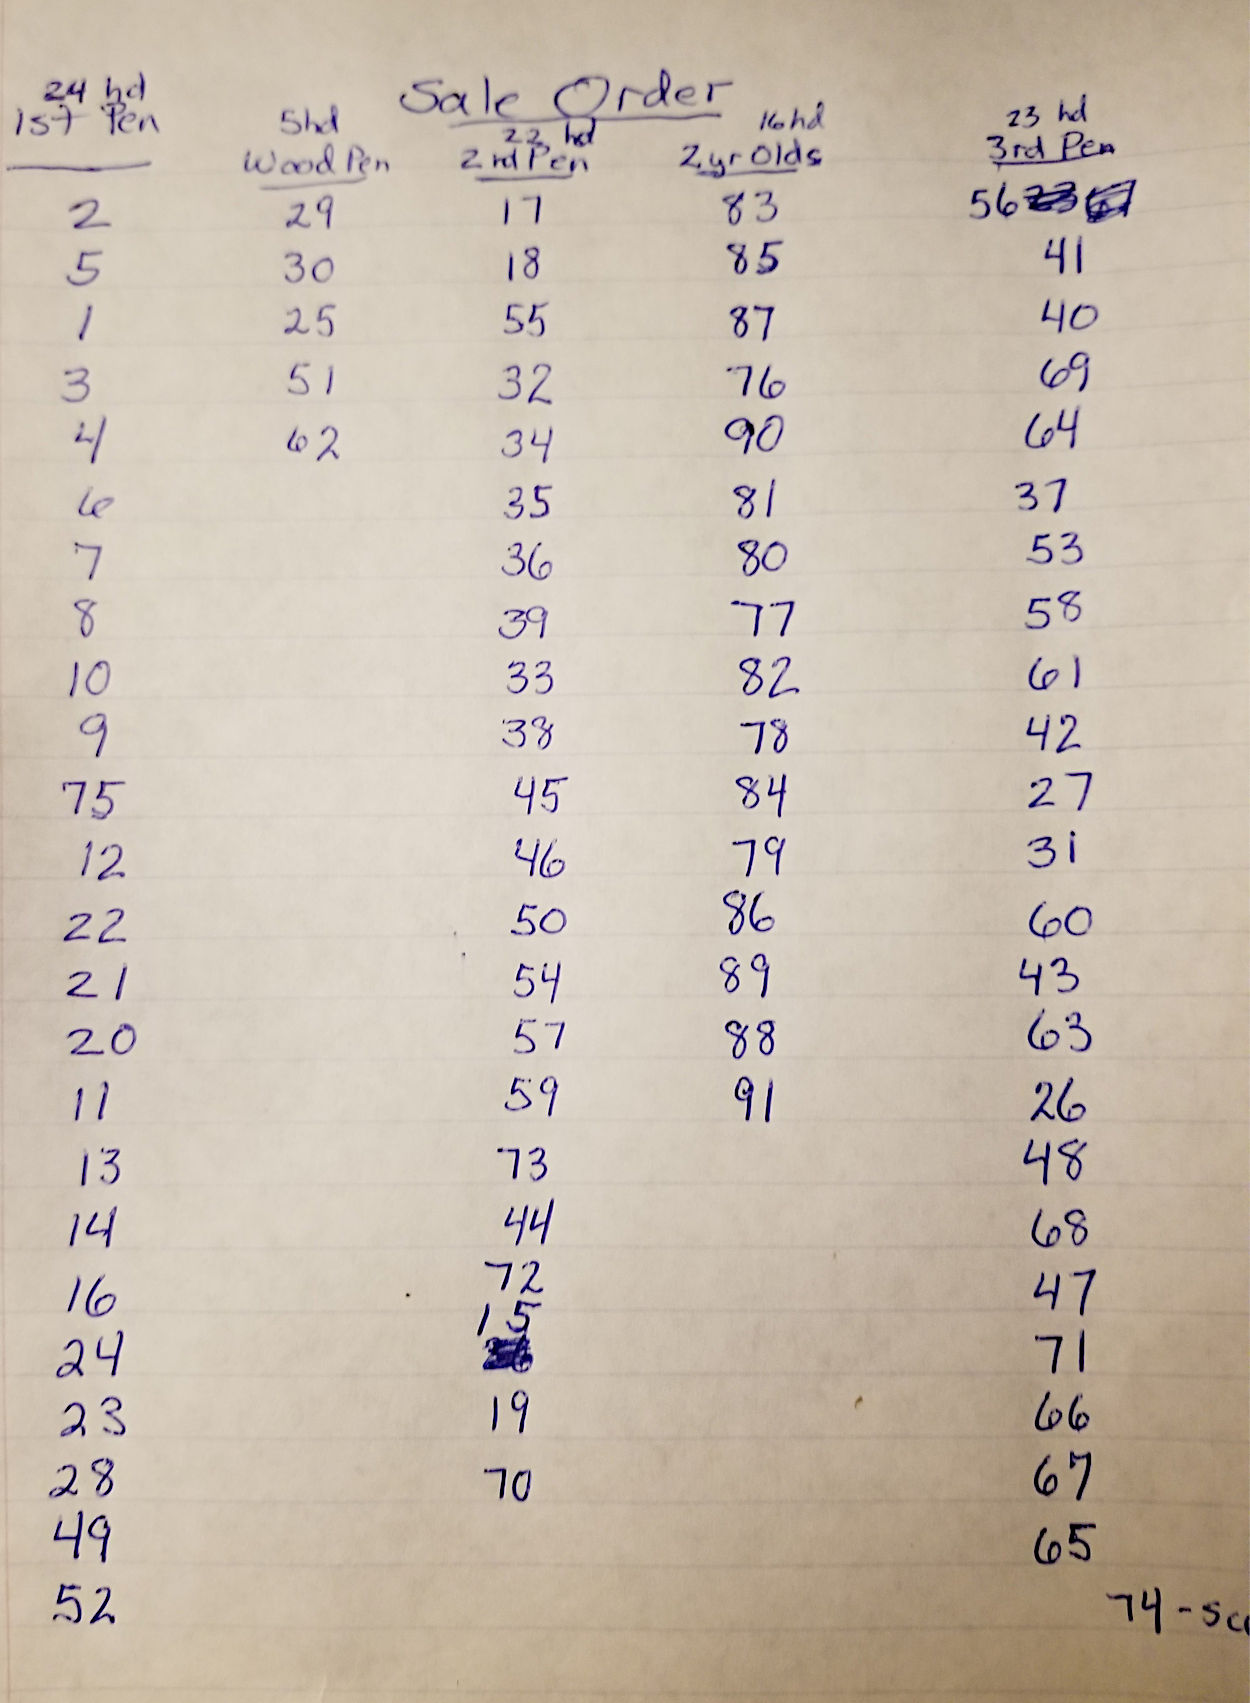 Sale Order
24 hd 5hd 22 hd 16hd 23 hd
1st Pen Wood Pen 2nd Pen 2yr Olds 3rd Pen
2 29 17 83 56
5 30 18 85 41
1 25 55 87 40
3 51 32 76 69
4 62 34 90 64
6 35 81 37
7 36 80 53
8 39 77 58
10 33 82 61
9 38 78 42
75 45 84 27
12 46 79 31
22 50 86 60
21 54 89 43
20 57 88 63
11 59 91 26
13 73 48
14 44 68
16 72 47
15
24 71
23 19 66
28 70 67
49 65
52 74 -